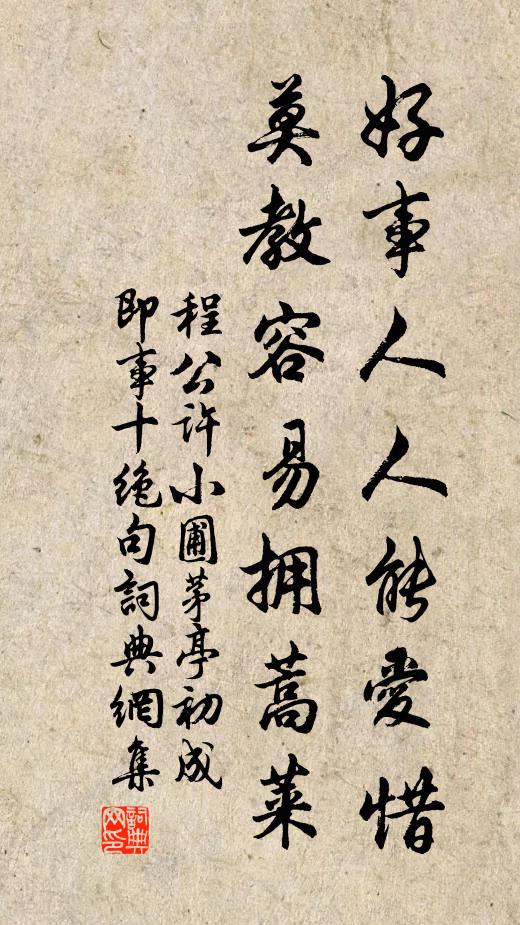 好事人人能愛惜
莫教容易拥蒿莱
程公许小圃茅亭初成
即事十绝句詞典網集
詞典
网印